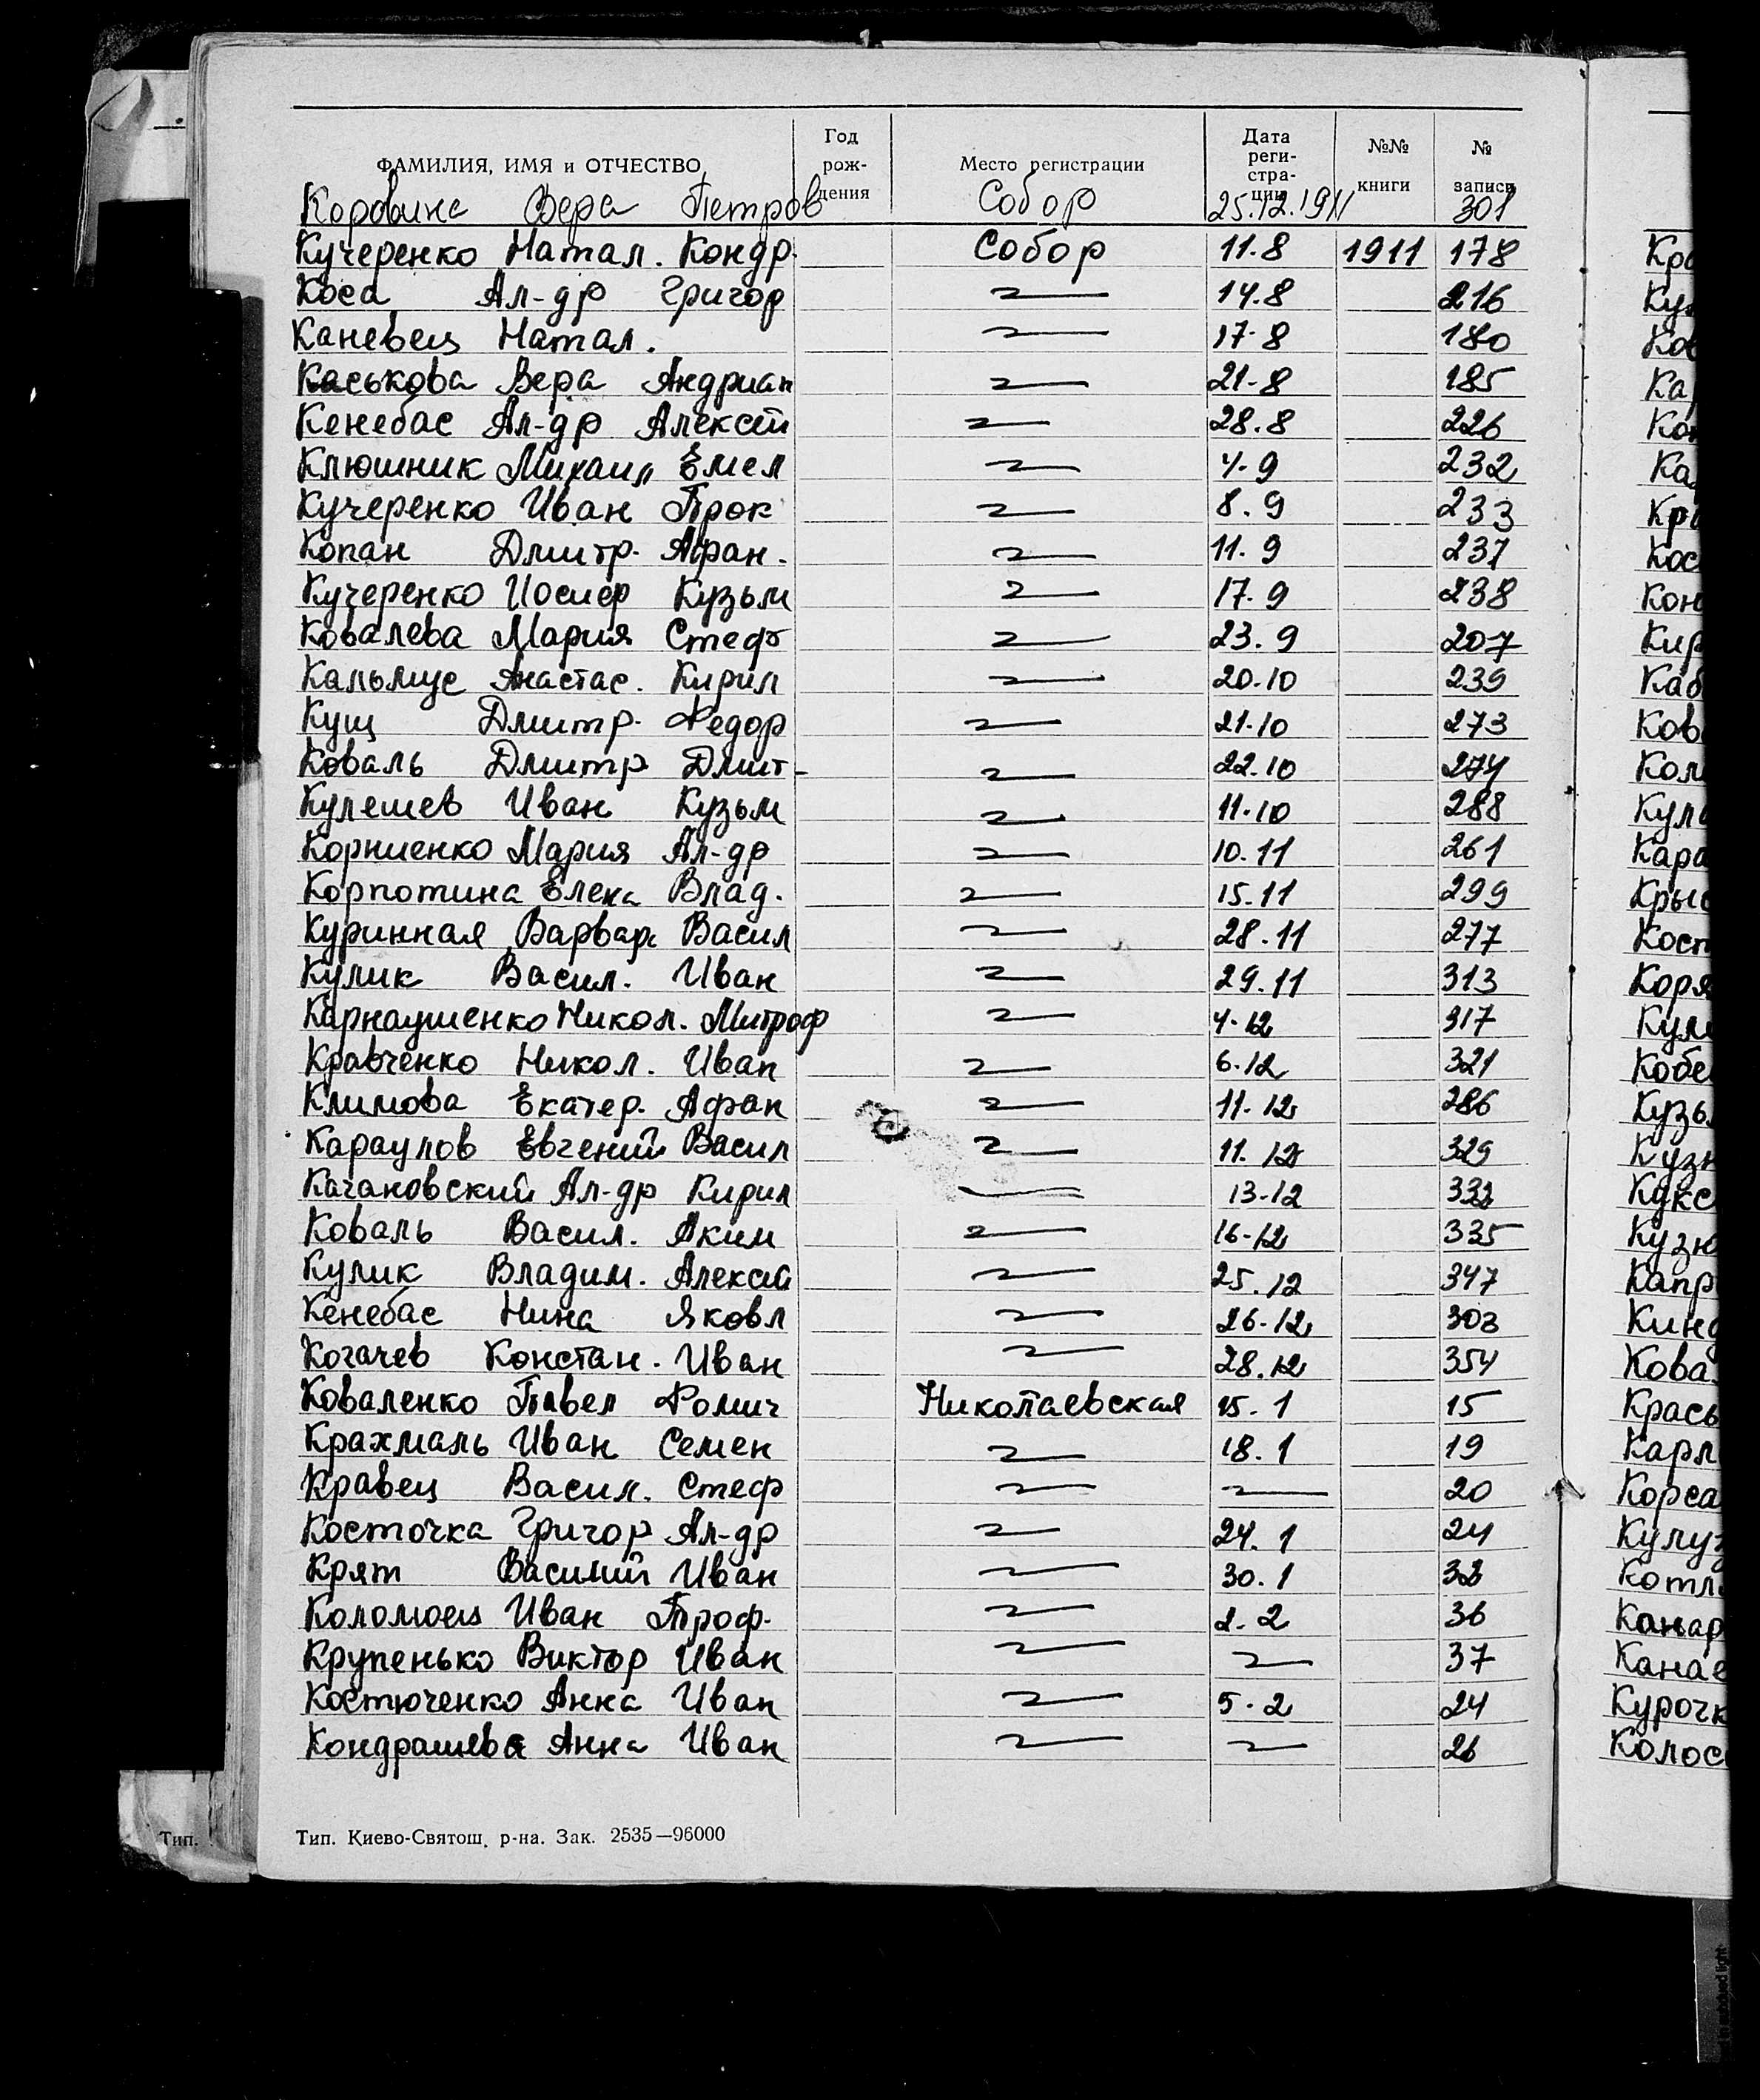 ФАМИЛИЯ, ИМЯ и ОТЧЕСТВО Год рож- дения Место регистрации Дата реги- стра- ции №№ книги № записи
Коровина Вера Петров Собор 25.12.1911 301
Кучеренко Натал. Кондр. Собор 11.8 1911 178
Коса Ал-др Григор 14.8 216
Каневец Натал. 17-8 180
Каськова Вера Андриан 21-8 185
Кенебас Ал-др Алексей 28.8 226
Клюшник Михаил Емел 4.9 232
Кучеренко Иван Прок 8.9 233
Копан Дмитр. Афан. 11.9 237
Кучеренко Иосиф Кузьм 17.9 238
Ковалева Мария Стеф 23.9 207
Кальмус Анастас. Кирил 20.10 239
Кущ Дмитр. Федор 21.10 273
Коваль Дмитр Дмит- 22.10 274
Кулешев Иван Кузьм 11.10 288
Корниенко Мария Ал-др 10.11 261
Корпотина Елена Влад. 15.11 299
Куринная Варвар Васил 28.11 277
Кулик Васил. Иван 29.11 313
Карнаушенко Никол. Митроф 4.12 317
Кравченко Никол. Иван 6.12 321
Климова Екатер. Афан 11.12 286
Караулов Евгений Васил 11.12 329
Качановский Ал-др Кирил 13-12
Коваль Васил. Аким 16-12 335
Кулик Владим. Алексей 25.12 347
Кенебас Нина Яковл 26-12 303
Когачев Констан. Иван 28.12 354
Коваленко Павел Фомич Николаевская 15.1 15
Крахмаль Иван Семен 18.1 19
Кравец Васил. Стеф 20
Косточка Григор Ал-др 24.1 24
Крят Василий Иван 30.1
Коломоец Иван Троф. 2.2 36
Крупенько Виктор Иван 37
Костюченко Анна Иван 5.2 24
Кондрашева Анна Иван 26
Тип. Киево-Святош. р-на. Зак. 2535—96000
Тип.